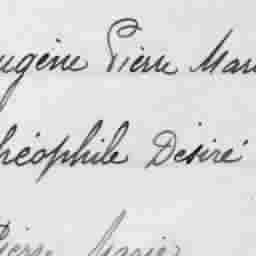 ugène Pierre Mari
héophile Désiré
Pierre